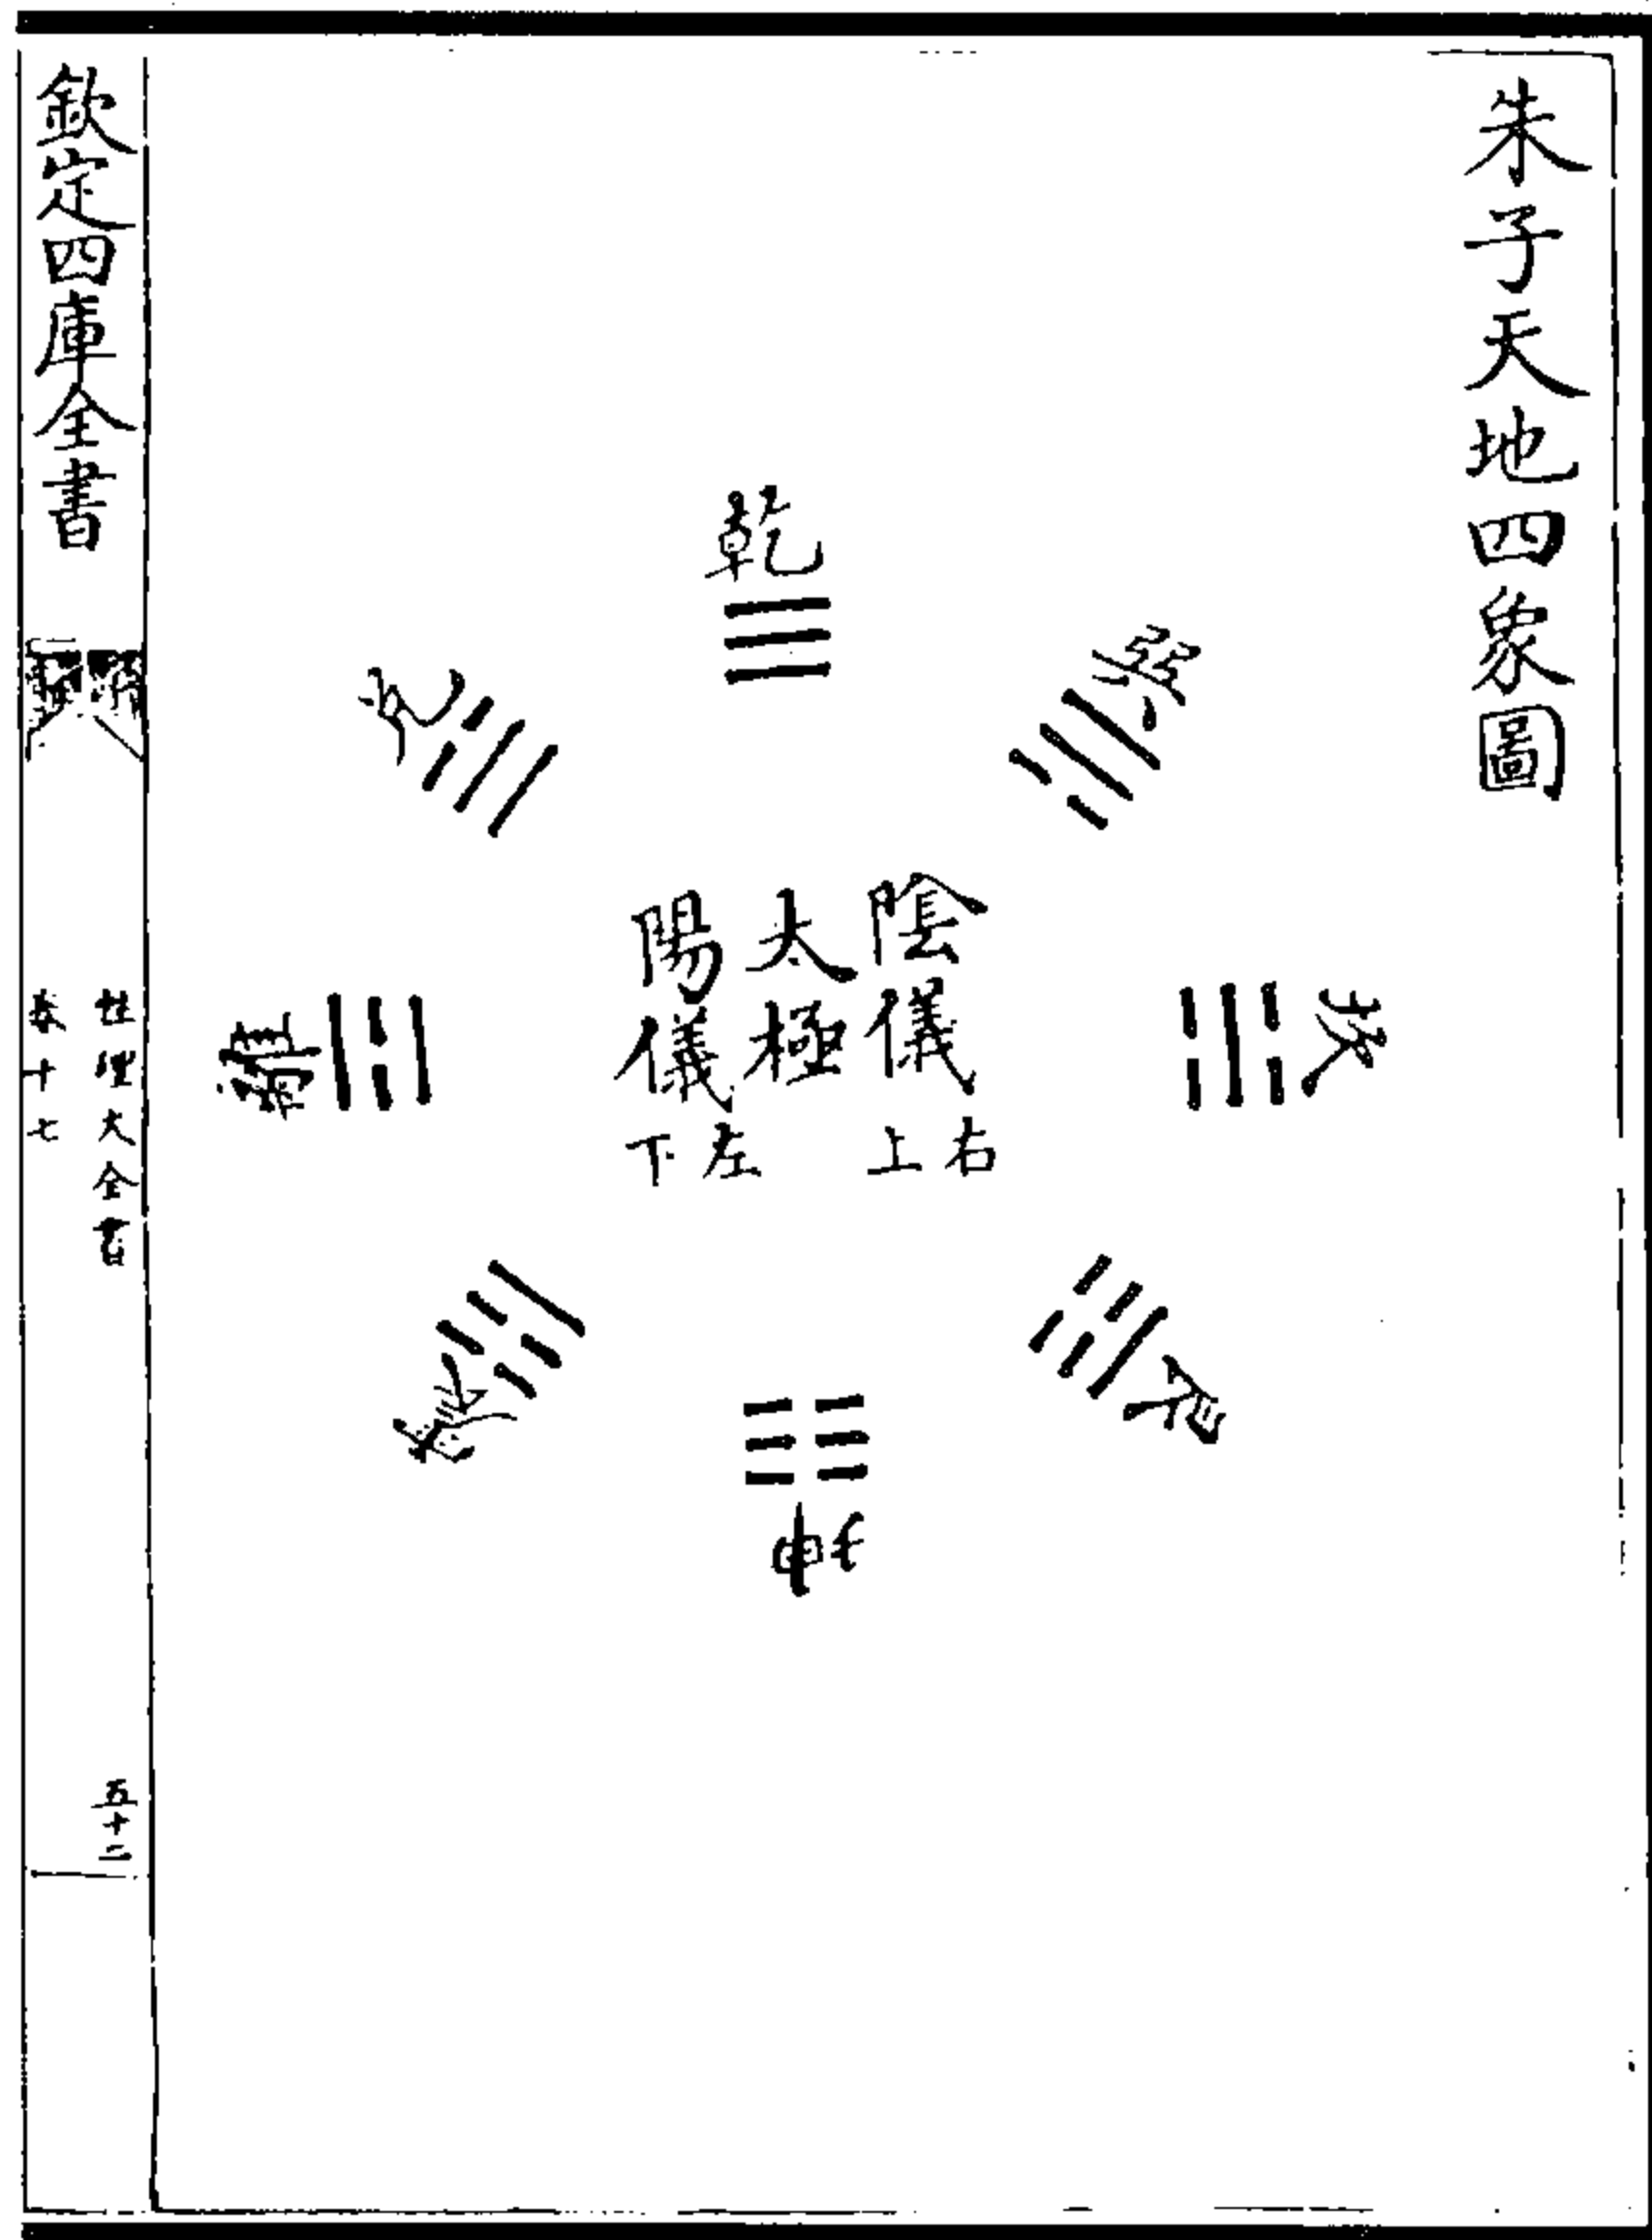 朱子天地四象圖
乾
巽
坎
艮
坤
震
離
兌
陰儀右上
太極
陽儀左下
欽定四庫全書
性理大全書
卷十七
五十二